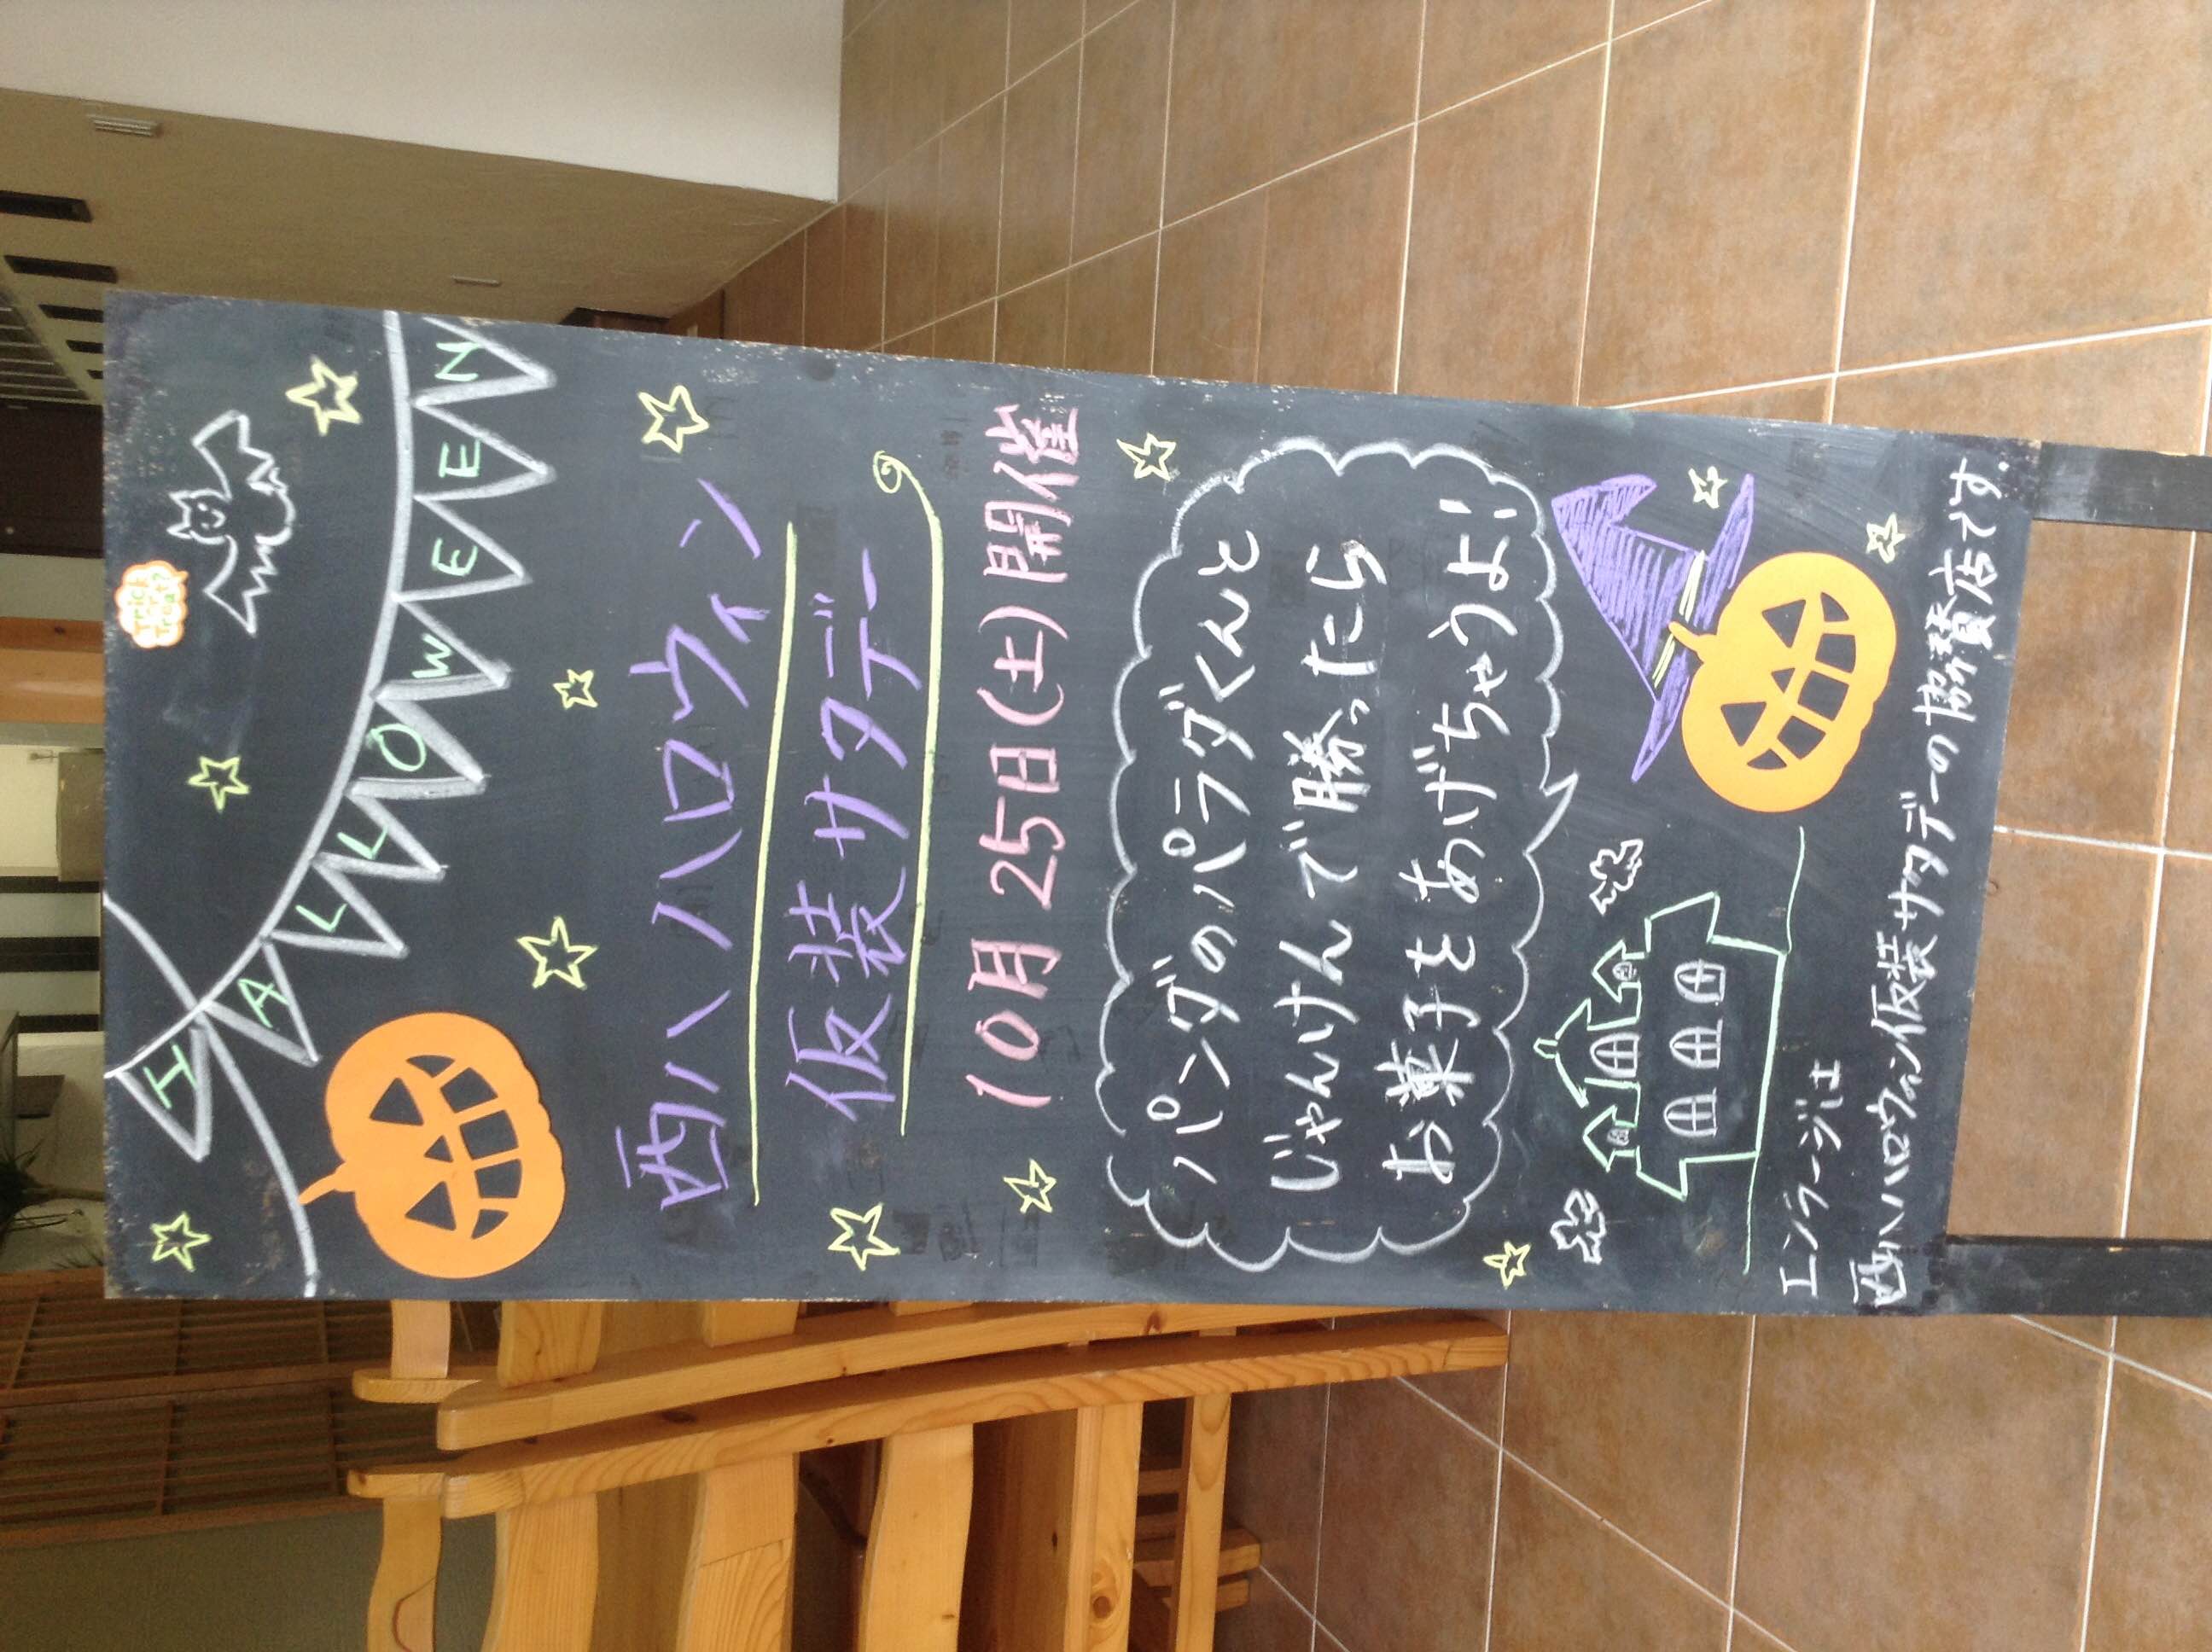 Trick or Treat?
HALLOWEEN
西ハハロウィン
仮装サタデー
10月25日(土)開催
パンダのパラダくんと
じゃんけんで勝ったら
お菓子をあげちゃうよ!!
エンラージは
西ハハロウィン仮装サタデーの協賛店です。